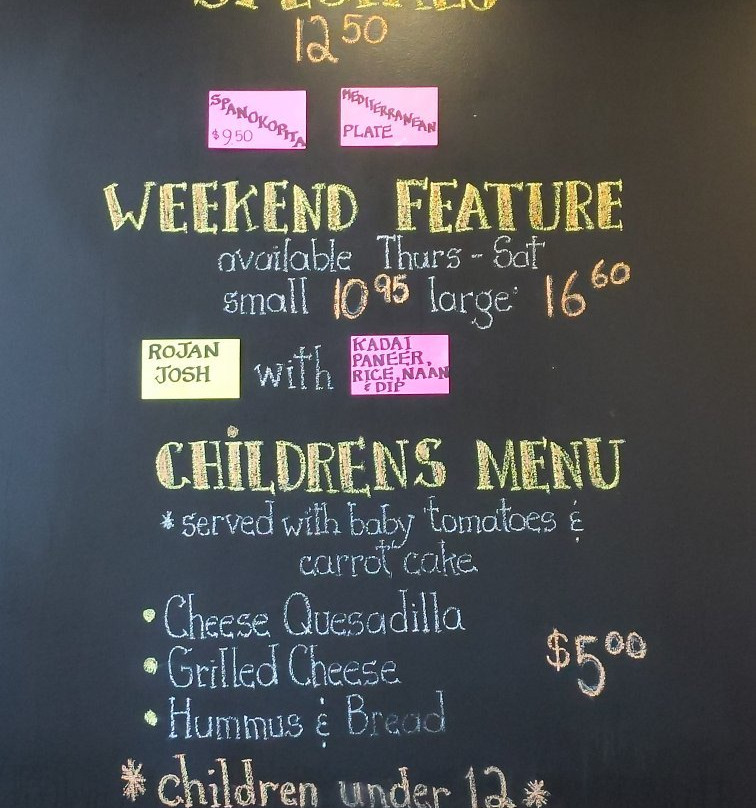 SPECIALS
12 50
SPANOKOPITA
$9.50
MEDITERRANEAN
PLATE
WEEKEND FEATURE
available Thurs - Sat
small 10 95 large 16 60
ROJAN
JOSH
with
KADAI
PANEER,
RICE, NAAN
& DIP
CHILDRENS MENU
*served with baby tomatoes &
carrot cake
• Cheese Quesadilla
• Grilled Cheese
$5 00
• Hummus & Bread
*children under 12*